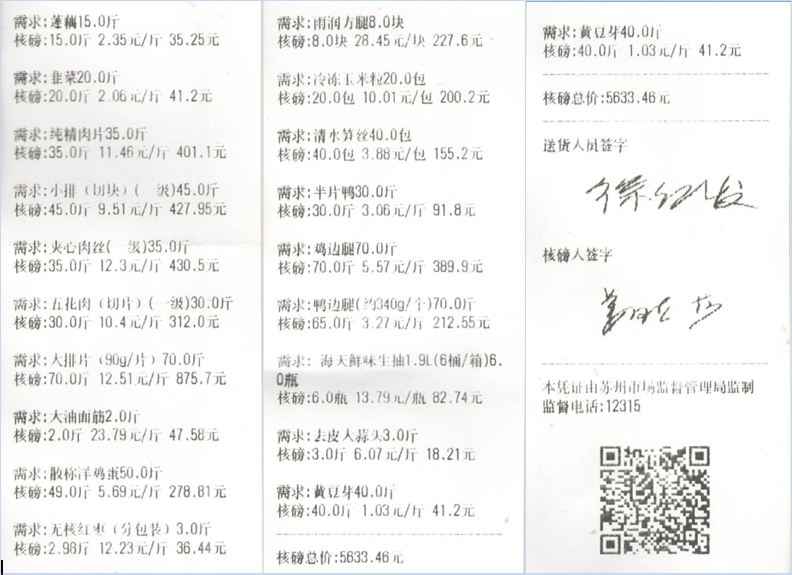 需求:莲藕15.0斤
核磅:15.0斤 2.35元/斤 35.25元
需求:韭菜20.0斤
核磅:20.0斤 2.06元/斤 41.2元
需求:纯精肉片35.0斤
核磅:35.0斤 11.46元/斤 401.1元
需求:小排（切块）(一级)45.0斤
核磅:45.0斤 9.51元/斤 427.95元
需求:夹心肉丝(一级)35.0斤
核磅:35.0斤 12.3元/斤 430.5元
需求:五花肉（切片）(一级)30.0斤
核磅:30.0斤 10.4元/斤 312.0元
需求:大排片（90g/片）70.0斤
核磅:70.0斤 12.51元/斤 875.7元
需求:大油面筋2.0斤
核磅:2.0斤 23.79元/斤 47.58元
需求:散称洋鸡蛋50.0斤
核磅:49.0斤 5.69元/斤 278.81元
需求:无核红枣（分包装）3.0斤
核磅:2.98斤 12.23元/斤 36.44元
需求:雨润方腿8.0块
核磅:8.0块 28.45元/块 227.6元
需求:冷冻玉米粒20.0包
核磅:20.0包 10.01元/包 200.2元
需求:清水笋丝40.0包
核磅:40.0包 3.88元/包 155.2元
需求:半片鸭30.0斤
核磅:30.0斤 3.06元/斤 91.8元
需求:鸡边腿70.0斤
核磅:70.0斤 5.57元/斤 389.9元
需求:鸭边腿(约340g/个)70.0斤
核磅:65.0斤 3.27元/斤 212.55元
需求: 海天鲜味生抽1.9L(6桶/箱)6.
0瓶
核磅:6.0瓶 13.79元/瓶 82.74元
需求:去皮大蒜头3.0斤
核磅:3.0斤 6.07元/斤 18.21元
需求:黄豆芽40.0斤
核磅:40.0斤 1.03元/斤 41.2元
核磅总价:5633.46元
需求:黄豆芽40.0斤
核磅:40.0斤 1.03元/斤 41.2元
核磅总价:5633.46元
送货人员签字
核磅人签字
本凭证由苏州市场监督管理局监制
监督电话:12315